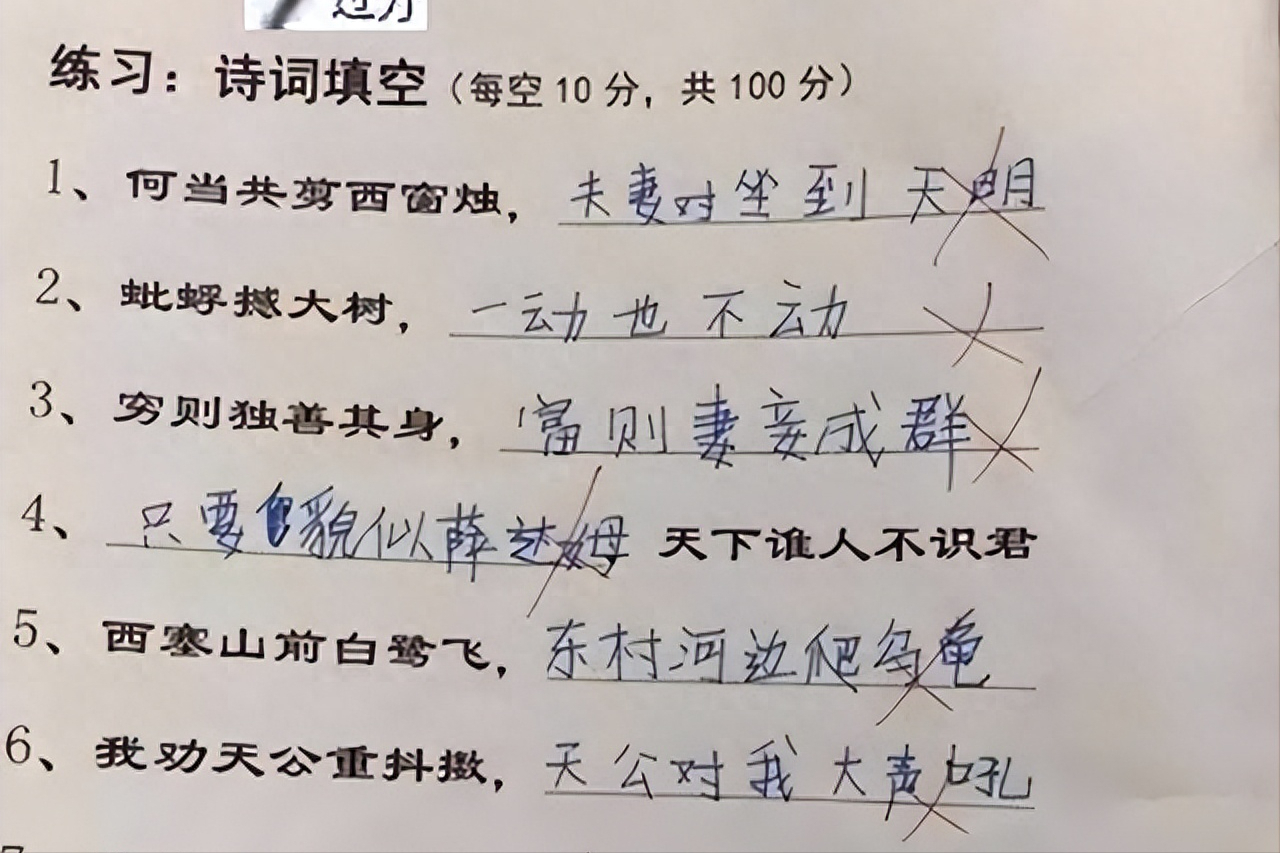 练习：诗词填空（每空10分，共100分）
1、何当共剪西窗烛，夫妻对坐到天明
2、蚍蜉撼大树，一动也不动
3、穷则独善其身，富则妻妾成群
4、只要貌似薛达姆 天下谁人不识君
5、西塞山前白鹭飞，东村河边爬乌龟
6、我劝天公重抖擞，天公对我大声吼